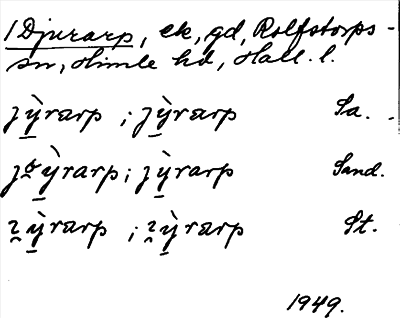 1 Djurarp, ek, gd, Rolfstorps-
sn, Himle hd, Hall. l.
ȷỳ̱rarp ; ȷỳ̱rarp Sa.
ỳ̱rarp ; ȷỳ̱rarp Sand.
ỳ̱rarp ; ỳ̱rarp St.
1949.